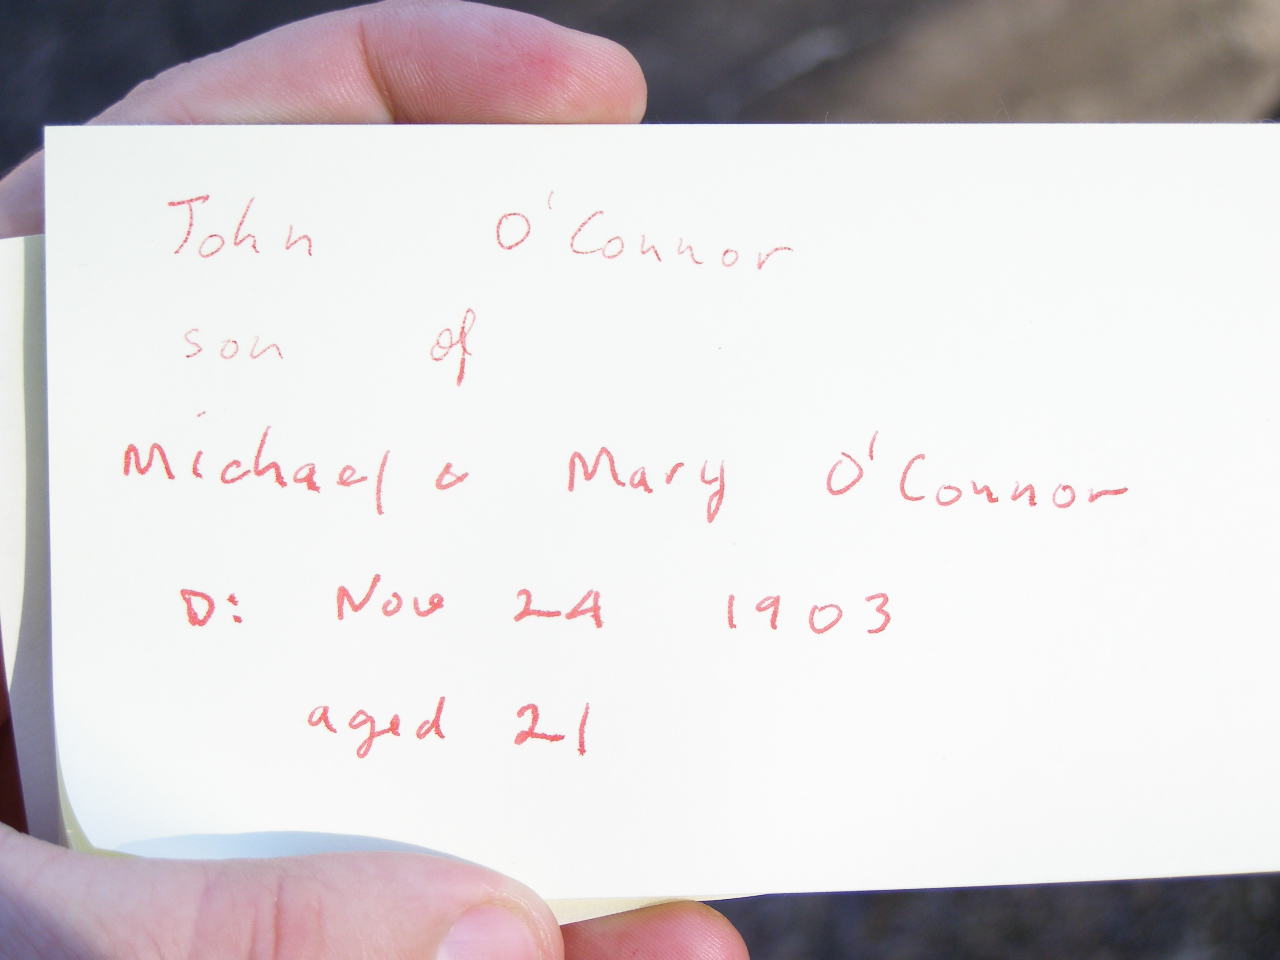 John O'Connor
son of
Michael & Mary O'Connor
D: Nov 24 1903
aged 21